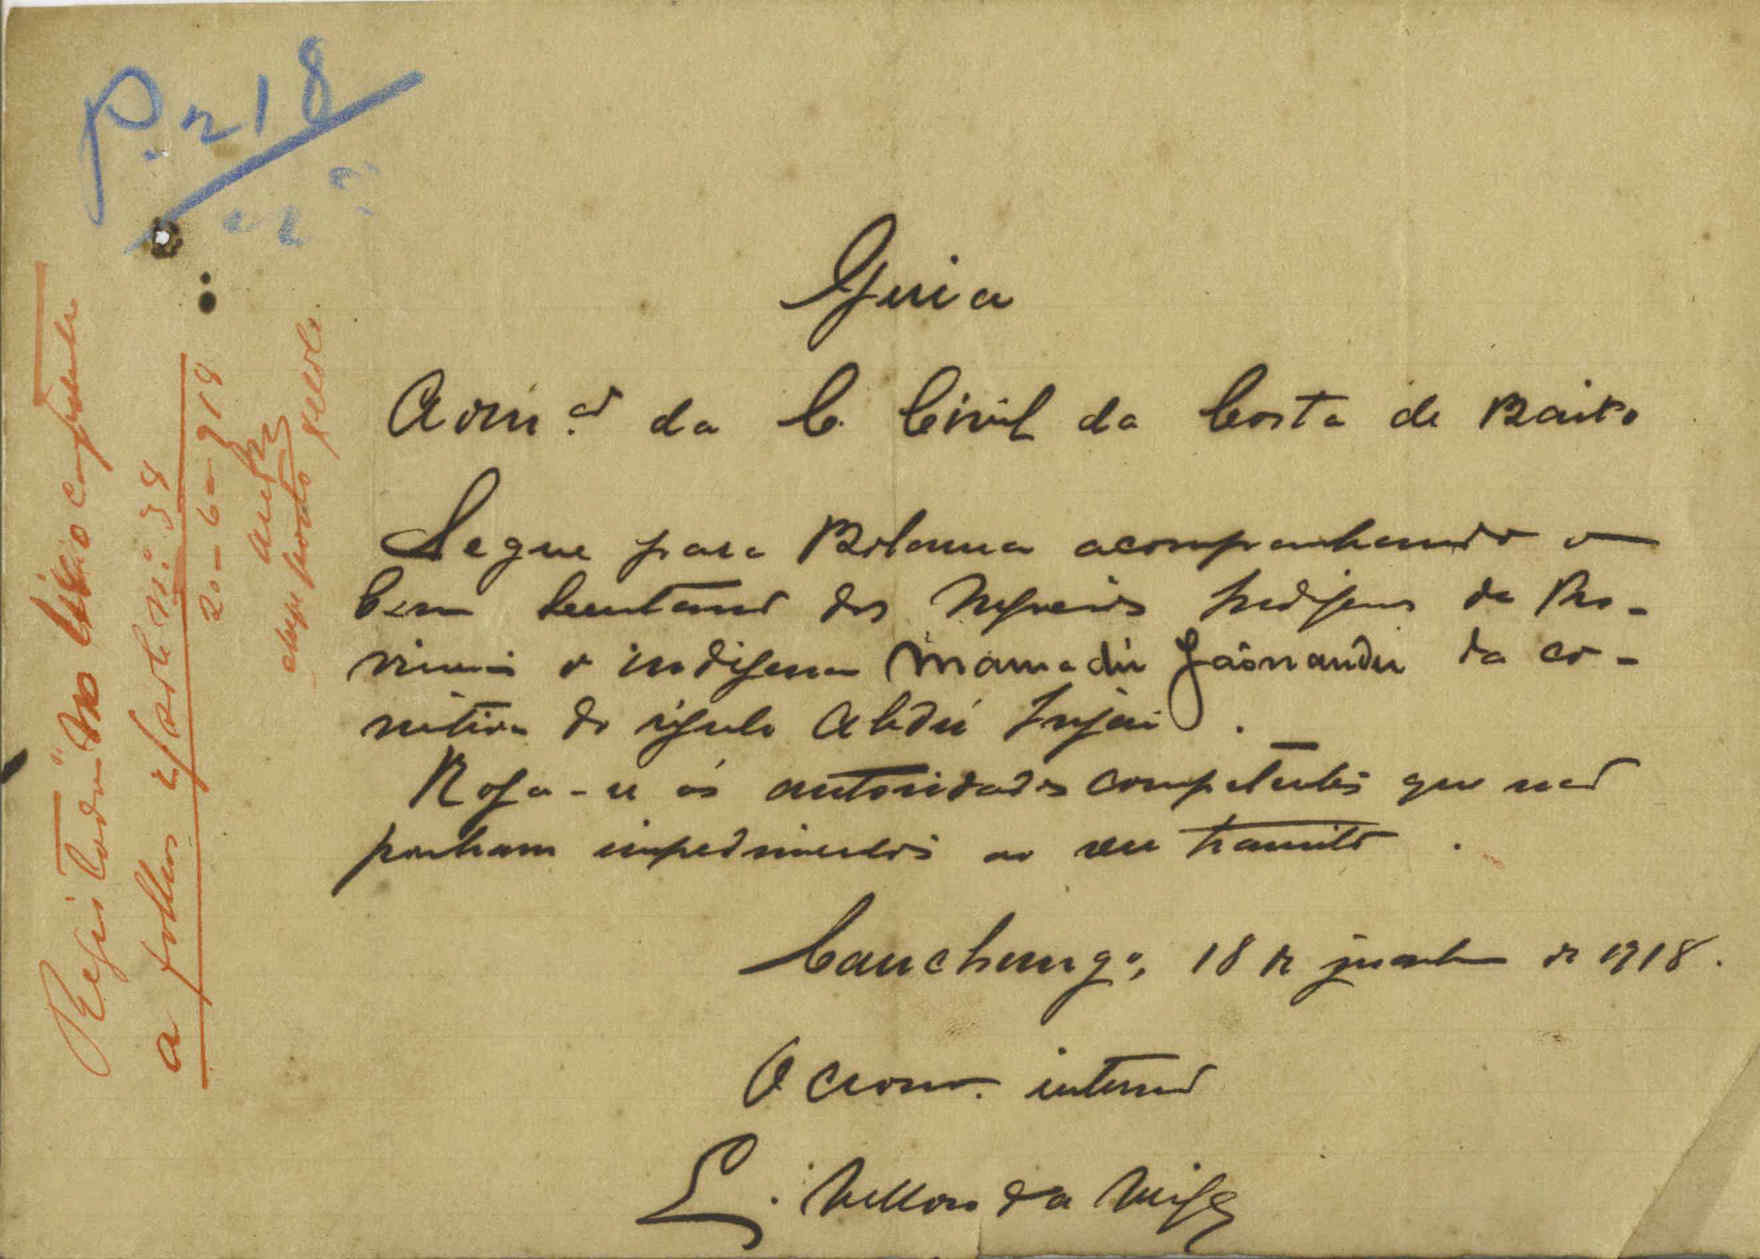 P. n 18
Guia
Adm.ᵃᵒ da C. Civil da Costa de Baixo
Segue para Bolama acompanhando o
Ex.mo dos Negocios Indigenas da Pro-
vincia o indigena Mamadú da co-
mitiva do régulo Abdú Injai.
Roga-se ás autoridades competentes que não
ponham impedimentos ao seu transito.
Canchungo, 18 de junho de 1918.
O Adm.ᵒʳ interino
L. da Veiga
Registado no Livro competente
a folhas sob o nº 38
20-6-918